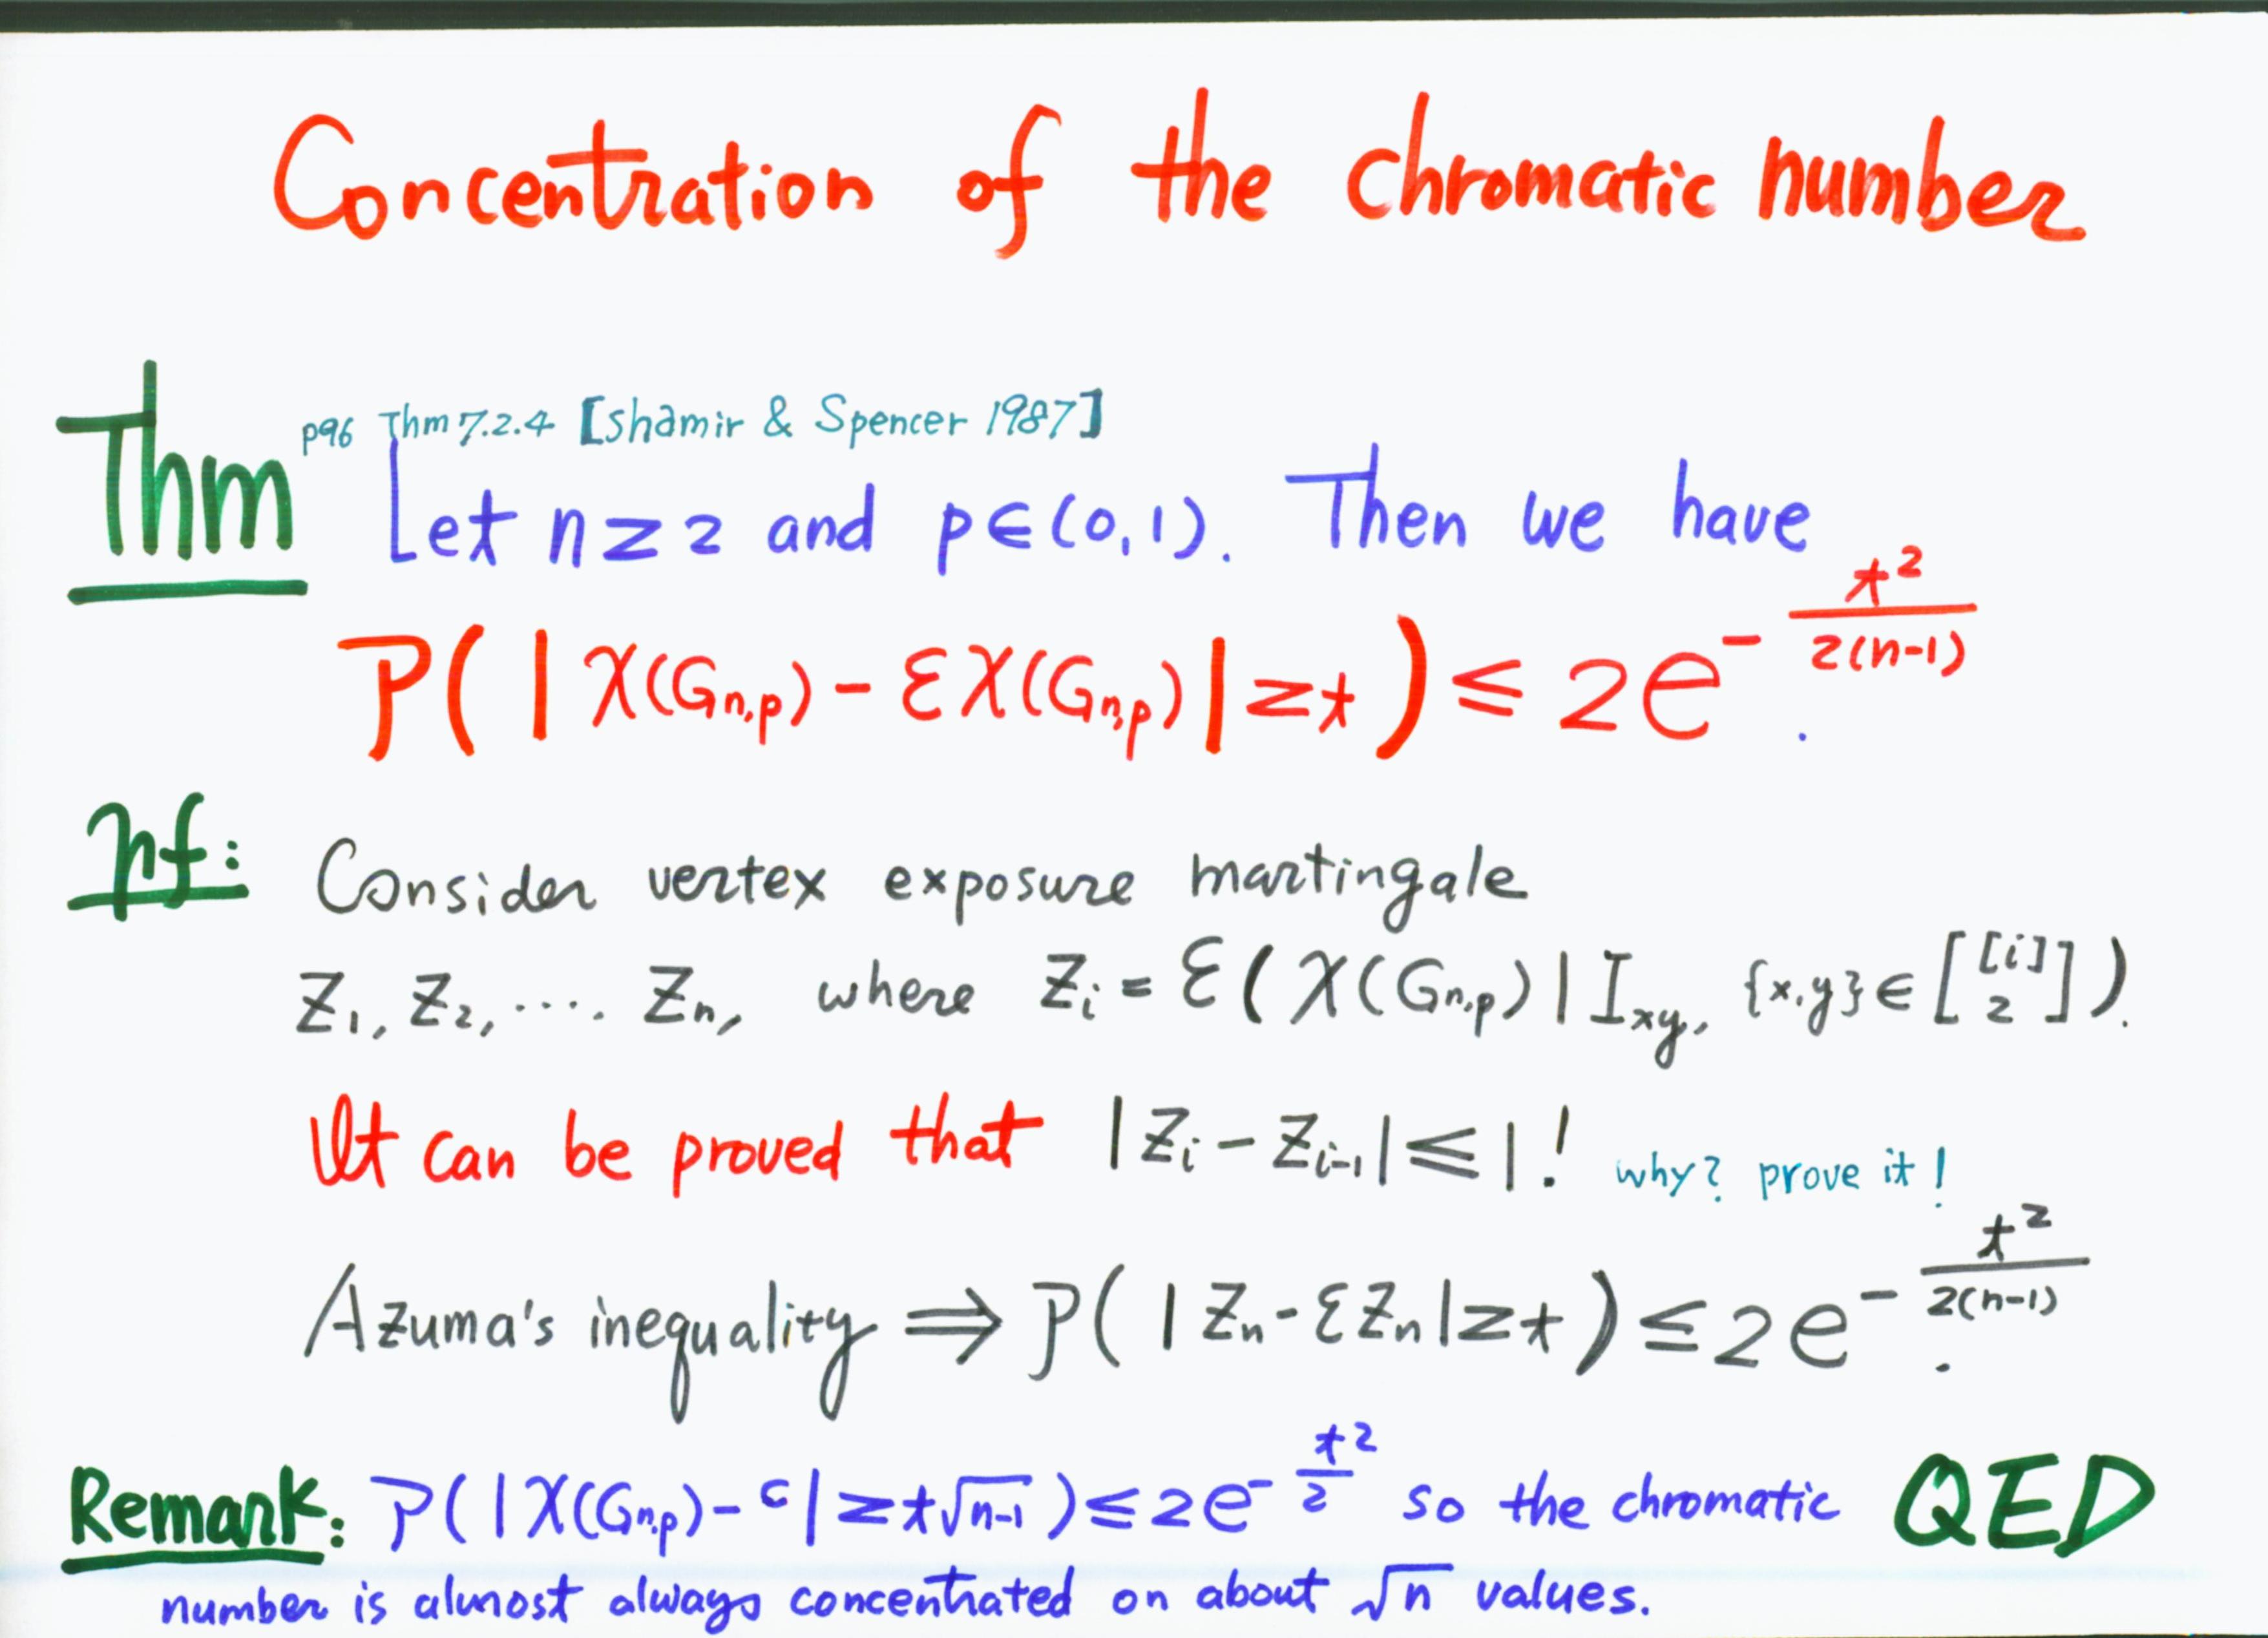 Concentration of the chromatic number
p96 Thm 7.2.4 [Shamir & Spencer 1987]
Thm Let n ≥ 2 and p ∈ (0,1). Then we have
P( | χ(G_{n,p}) - εχ(G_{n,p}) | ≥ t ) ≤ 2e^{-t²/2(n-1)}.
pf: Consider vertex exposure martingale
Z₁, Z₂, .... Zₙ, where Zᵢ = ε( χ(G_{n,p}) | I_{xy}, {x,y} ∈ [[i] 2] ).
It can be proved that |Zᵢ - Zᵢ₋₁| ≤ 1! why? prove it!
Azuma's inequality ⇒ P( | Zₙ - εZₙ | ≥ t ) ≤ 2e^{-t²/2(n-1)}.
Remark: P( | χ(G_{n,p}) - c | ≥ t√(n-1) ) ≤ 2e^{-t²/2} so the chromatic QED
number is almost always concentrated on about √n values.